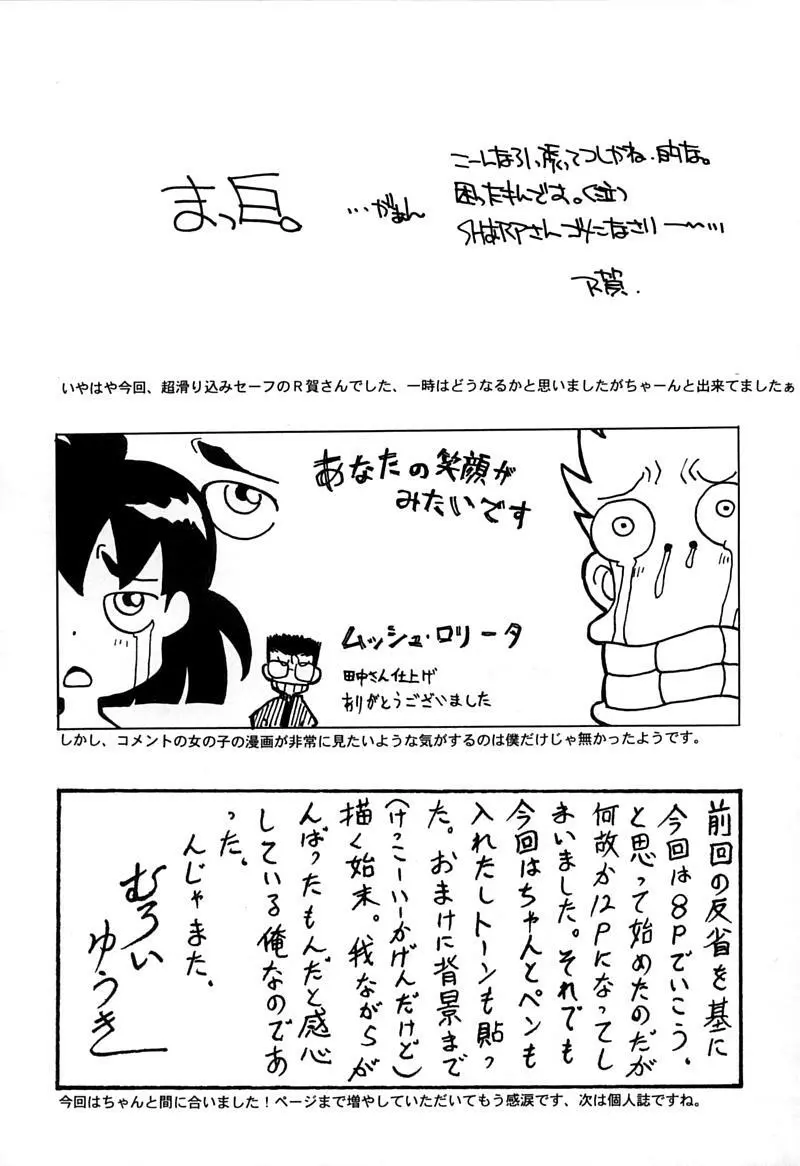 まっ白。
…がぁん
困ったもんです。(泣)
SHARPさんゴメンなさいー〜…
R賀.
いやはや今回、超滑り込みセーフのR賀さんでした、一時はどうなるかと思いましたがちゃーんと出来てましたぁ
あなたの笑顔が
みたいです
ムッシュ・ロリータ
田中さん仕上げ
ありがとうございました
しかし、コメントの女の子の漫画が非常に見たいような気がするのは僕だけじゃ無かったようです。
前回の反省を基に
今回は8Pでいこう。
と思って始めたのだが
何故か12Pになってし
まいました。それでも
今回はちゃんとペンも
入れたしトーンも貼っ
た。おまけに背景まで
(けっこーいーかげんだけど)
描く始末。我ながらが
んばったもんだと感心
している俺なのであ
った。
んじゃまた、
むろい
ゆうき
今回はちゃんと間に合いました！ページまで増やしていただいてもう感涙です、次は個人誌ですね。